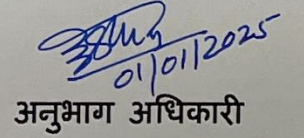 01/01/2025
अनुभाग अधिकारी